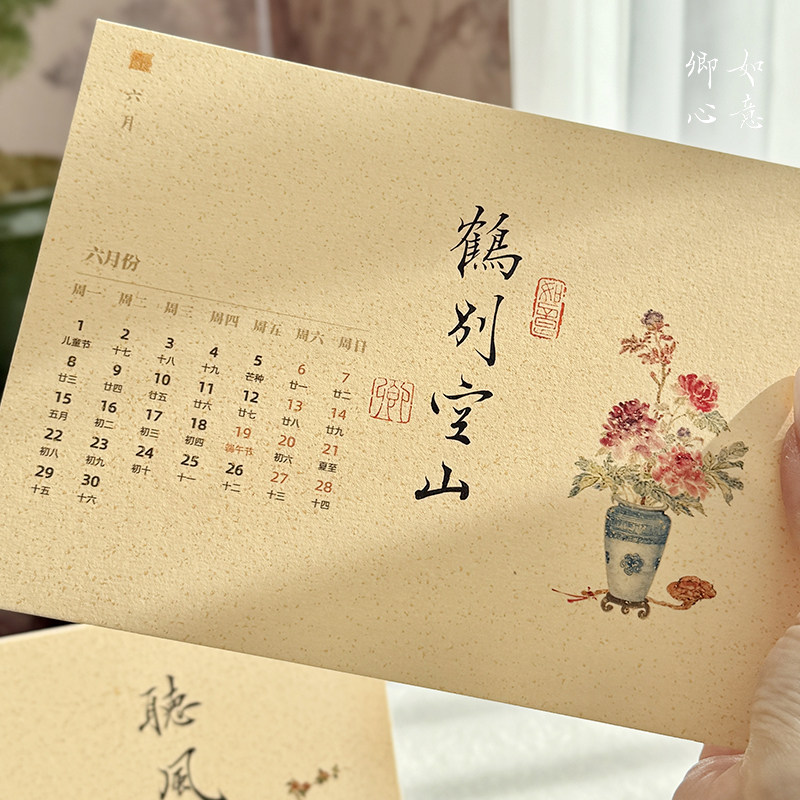 如意
卿心
六月
六月份
周一 周二 周三 周四 周五 周六 周日
1 2 3 4 5 6 7
儿童节 十七 十八 十九 芒种 廿一 廿二
8 9 10 11 12 13 14
廿三 廿四 廿五 廿六 廿七 廿八 廿九
15 16 17 18 19 20 21
五月 初二 初三 初四 端午节 初六 夏至
22 23 24 25 26 27 28
初八 初九 初十 十一 十二 十三 十四
29 30
十五 十六
鹤别空山
如意
卿
聽風